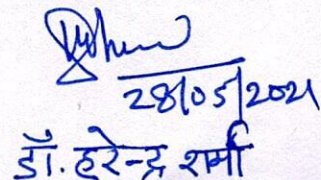 28/05/2021
डॉ. हरेन्द्र शर्मा